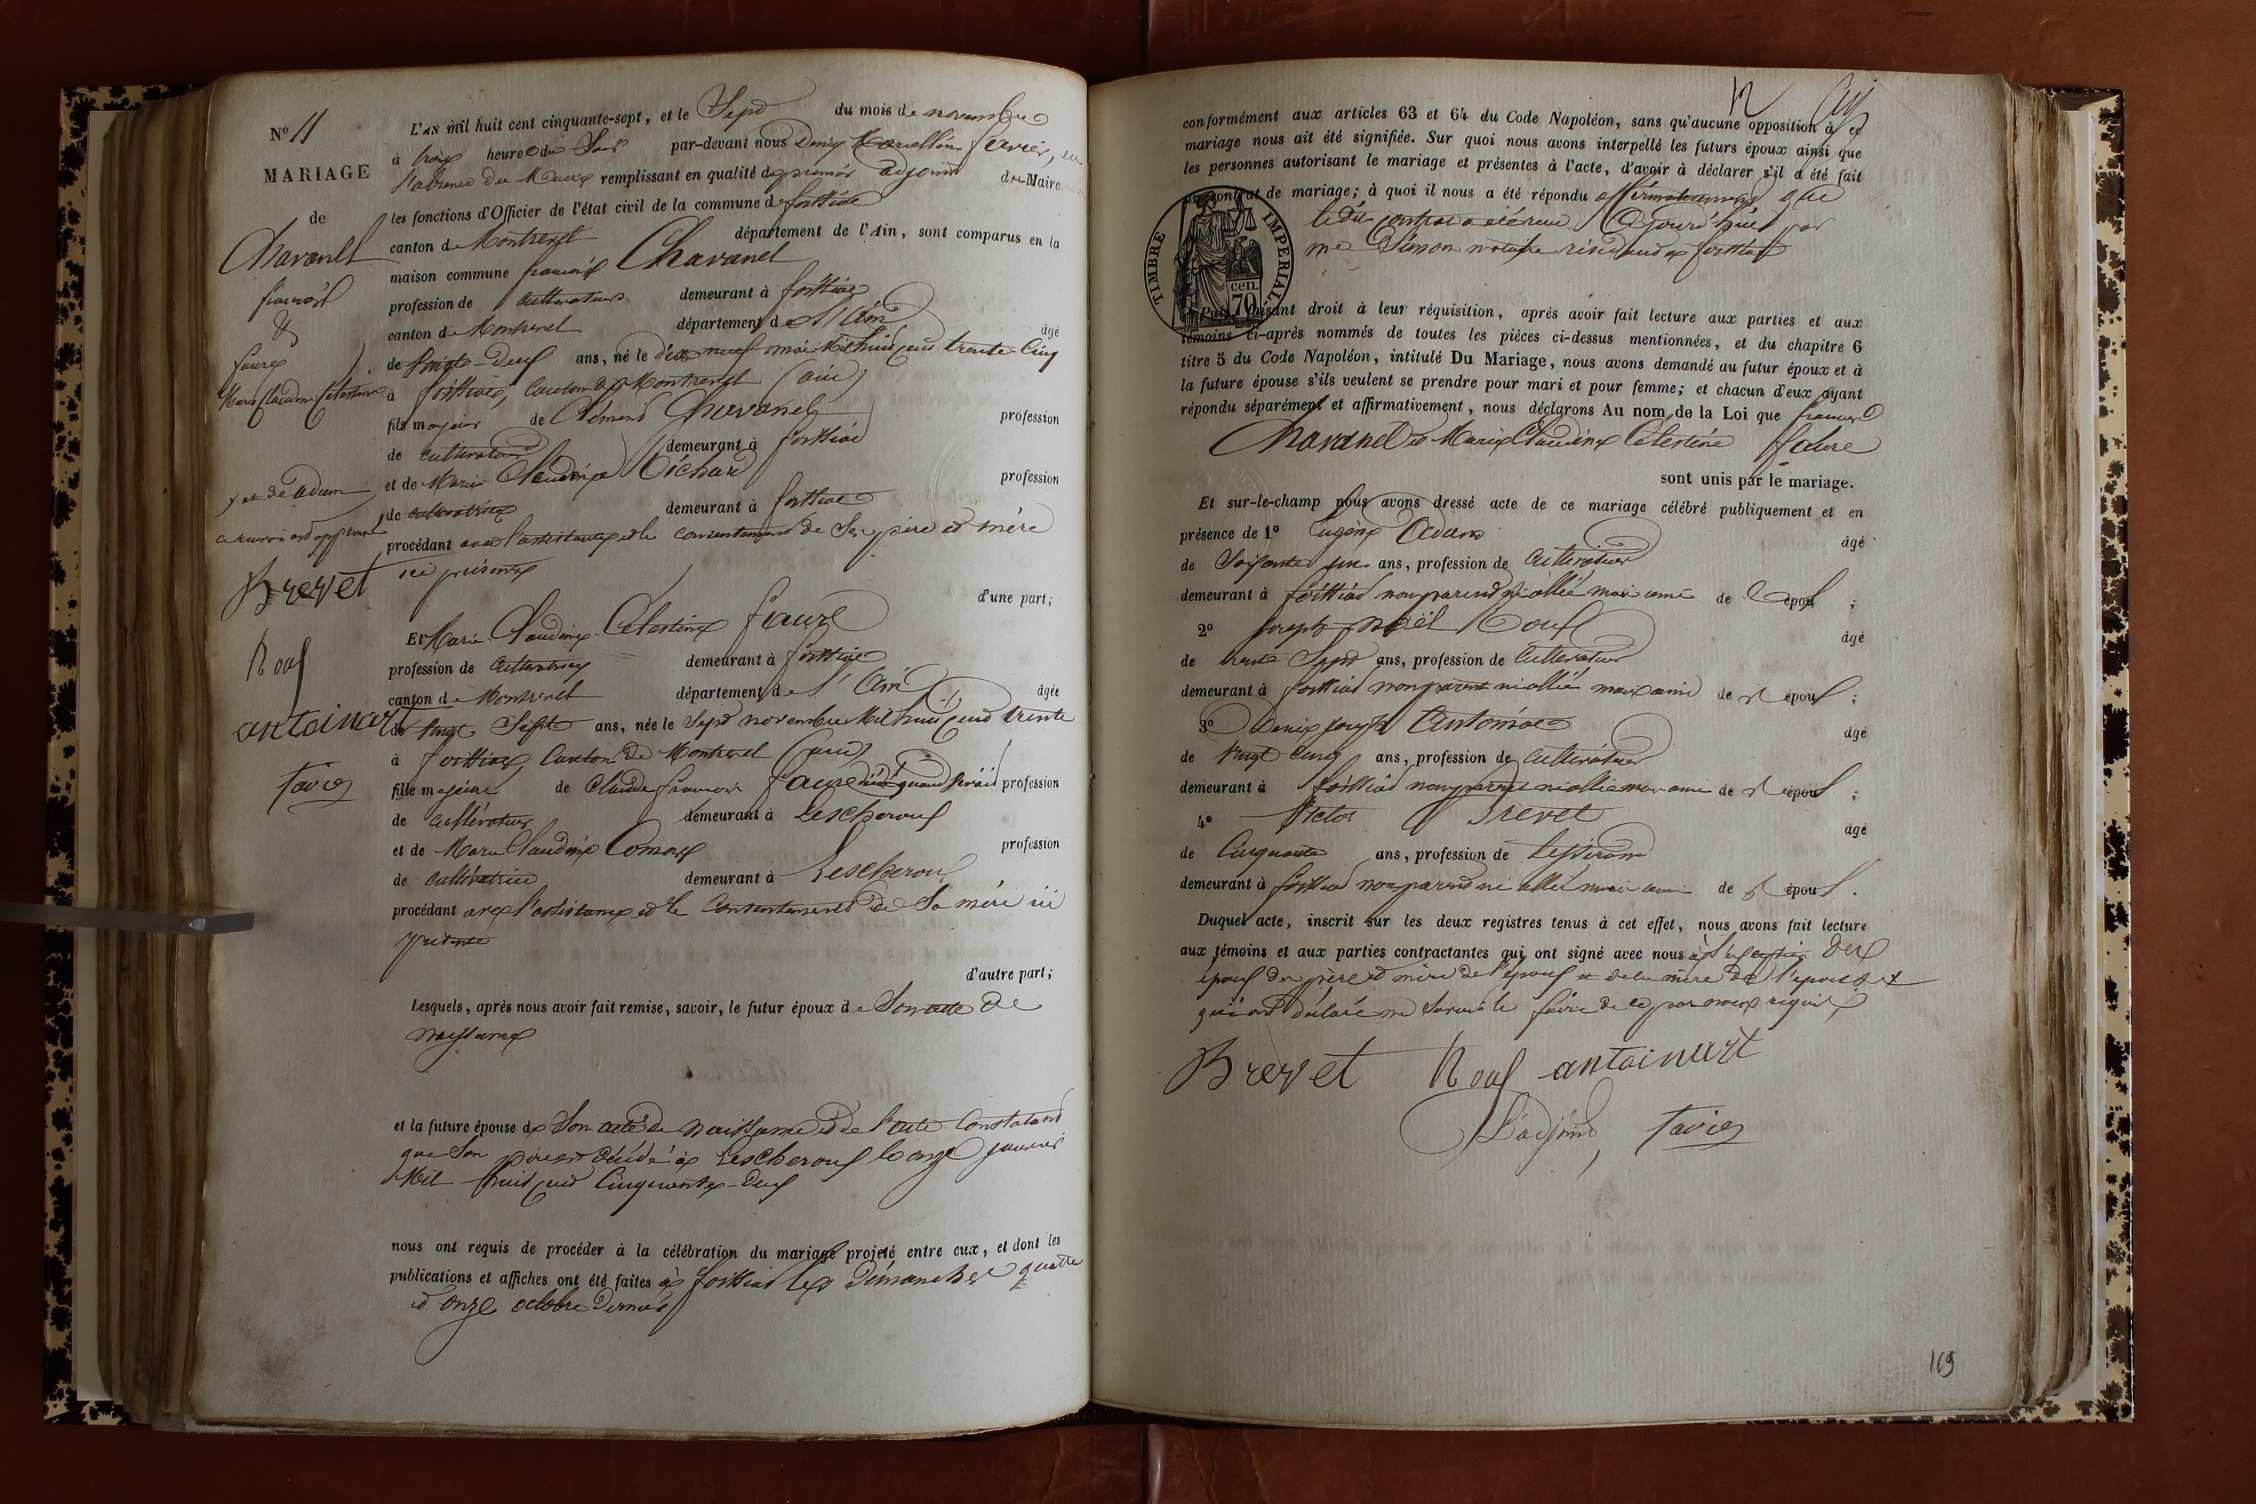 N° 11
MARIAGE
de
Chavanel
françois
&
faure
Marie Claudine Célestine
Brevet
Roux
antoinart
favier
L'AN mil huit cent cinquante-sept, et le Sept du mois de novembre
à trois heures du Soir par-devant nous Denis Marcellin favier, en
l'absence du Maire remplissant en qualité de premier adjoint du Maire
les fonctions d'Officier de l'état civil de la commune de foissiat
canton de Montrevel département de l'Ain, sont comparus en la
maison commune françois Chavanel
profession de cultivateur demeurant à foissiat
canton de Montrevel département de l'Ain âgé
de vingt-deux ans, né le dix neuf mai Mil huit cent trente cinq
à foissiat, canton de Montrevel (ain)
fils majeur de Clément Chavanel profession
de cultivateur demeurant à foissiat
et de Marie Claudine profession
de cultivatrice demeurant à foissiat
procédant avec l'assistance et le consentement de Ses père et mère
ici présents
d'une part;
ET Marie Claudine Célestine faure
profession de cultivatrice demeurant à foissiat
canton de Montrevel département de l'Ain âgée
de vingt Sept ans, née le Sept novembre Mil huit cent trente
à foissiat, canton de Montrevel (ain)
fille majeure de Claude françois faure profession
de cultivateur demeurant à Lescheroux
et de Marie Claudine profession
de cultivatrice demeurant à Lescheroux
procédant avec l'assistance et le consentement de Sa mère ici
présente
d'autre part;
Lesquels, après nous avoir fait remise, savoir, le futur époux de Son acte de
naissance
et la future épouse de Son acte de naissance et de l'acte Constatant
que Son père est décédé à Lescheroux le onze janvier
Mil huit cent Cinquante-deux
nous ont requis de procéder à la célébration du mariage projeté entre eux, et dont les
publications et affiches ont été faites à foissiat les Dimanches quatre
et onze octobre dernier
conformément aux articles 63 et 64 du Code Napoléon, sans qu'aucune opposition à ce
mariage nous ait été signifiée. Sur quoi nous avons interpellé les futurs époux ainsi que
les personnes autorisant le mariage et présentes à l'acte, d'avoir à déclarer s'il a été fait
un contrat de mariage; à quoi il nous a été répondu affirmativement que
le dit contrat a été reçu aujourd'hui par
me Simon notaire résidant à foissiat
TIMBRE IMPERIAL
70 cen.
Puis, faisant droit à leur réquisition, après avoir fait lecture aux parties et aux
témoins ci-après nommés de toutes les pièces ci-dessus mentionnées, et du chapitre 6
titre 5 du Code Napoléon, intitulé Du Mariage, nous avons demandé au futur époux et à
la future épouse s'ils veulent se prendre pour mari et pour femme; et chacun d'eux ayant
répondu séparément et affirmativement, nous déclarons Au nom de la Loi que françois
Chavanel et Marie Claudine Célestine faure
sont unis par le mariage.
Et sur-le-champ nous avons dressé acte de ce mariage célébré publiquement et en
présence de 1° Eugène Adam âgé
de Soixante un ans, profession de cultivateur
demeurant à foissiat non parent ni allié mais ami de l'époux ;
2° Joseph noël Roux âgé
de trente Sept ans, profession de cultivateur
demeurant à foissiat non parent ni allié mais ami de l'époux ;
3° Denis joseph âgé
de vingt cinq ans, profession de cultivateur
demeurant à foissiat non parent ni allié mais ami de l'époux ;
4° Victor Brevet âgé
de Cinquante ans, profession de
demeurant à foissiat non parent ni allié mais ami de l'époux .
Duquel acte, inscrit sur les deux registres tenus à cet effet, nous avons fait lecture
aux témoins et aux parties contractantes qui ont signé avec nous à l'exception des
époux des père et mère de l'époux et de la mère de l'épouse
qui ont déclaré ne Savoir le faire de ce par nous requis
Brevet Roux antoinart
L'adjoint, favier
169